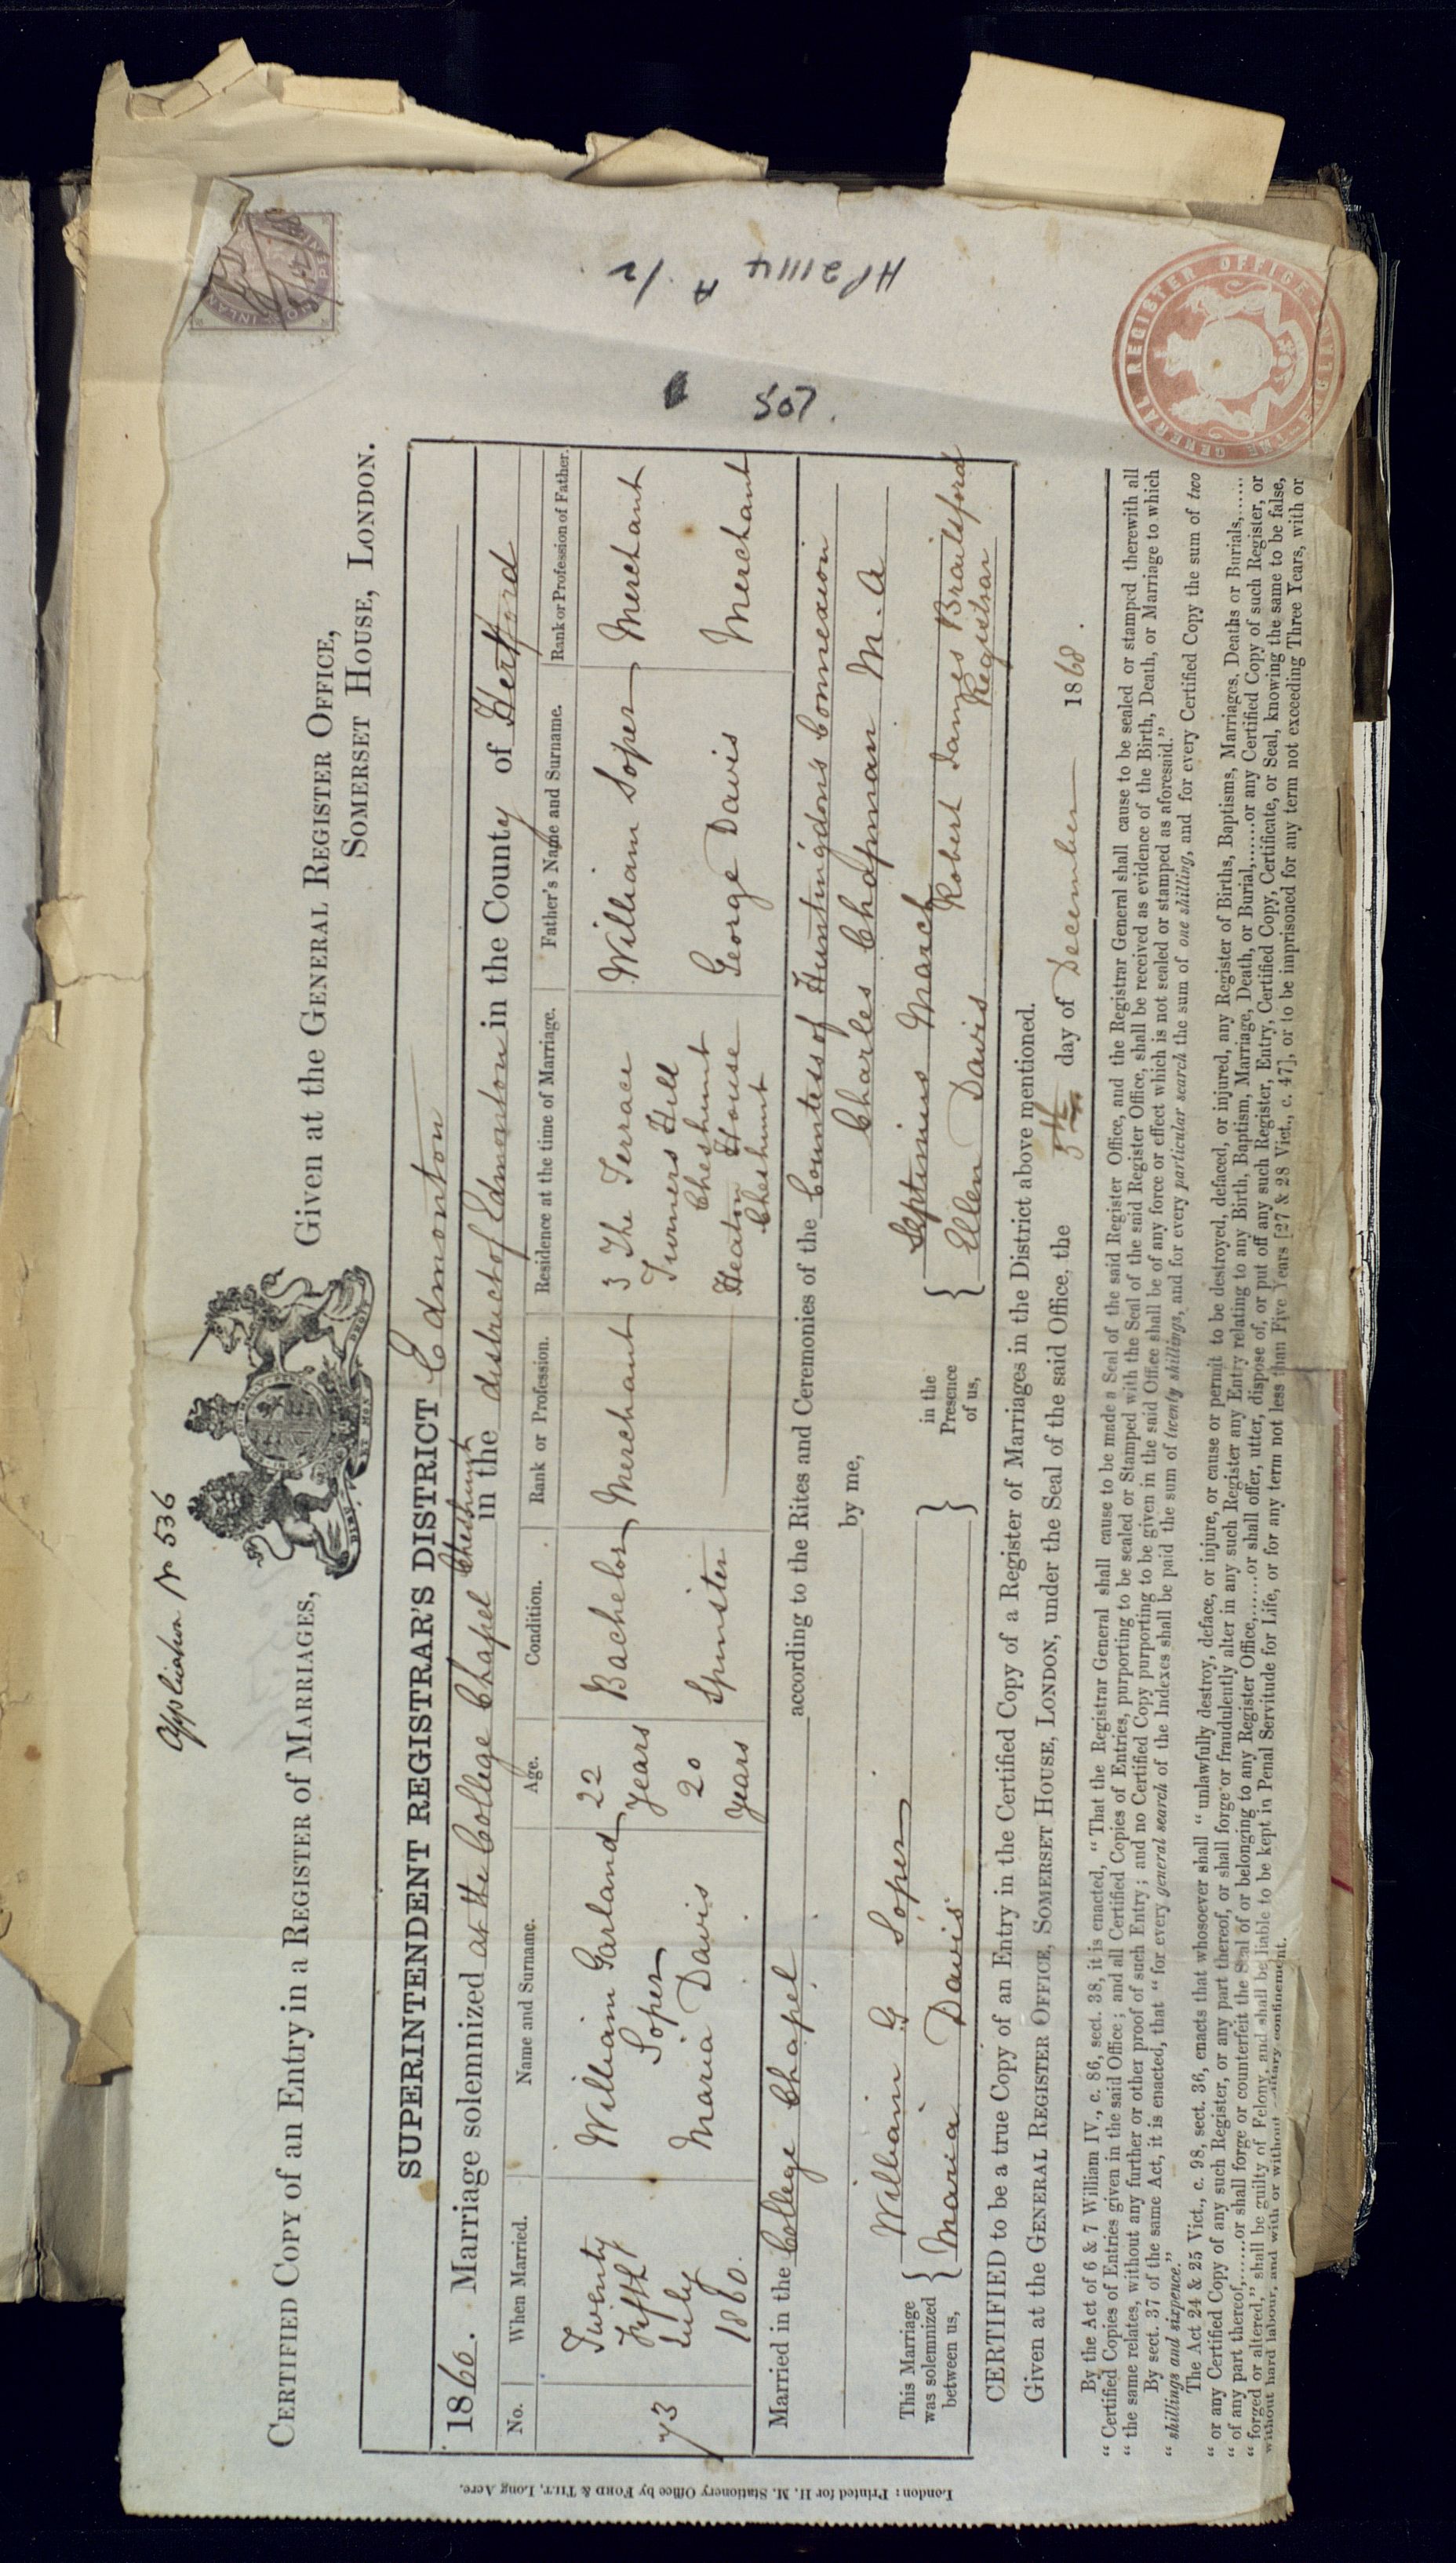 Application No 536
CERTIFIED COPY of an Entry in a REGISTER of MARRIAGES,
Given at the GENERAL REGISTER OFFICE,
SOMERSET HOUSE, LONDON.
SUPERINTENDENT REGISTRAR'S DISTRICT Edmonton
1860. Marriage solemnized at the College Chapel Cheshunt in the district of Edmonton in the County of Hertford
No.
When Married.
Name and Surname.
Age.
Condition.
Rank or Profession.
Residence at the time of Marriage.
Father's Name and Surname.
Rank or Profession of Father.
73
Twenty
Fifth
July
1860.
William Garland
Soper
22
years
Bachelor
Merchant
3 The Terrace
Turners Hill
Cheshunt
William Soper
Merchant
Maria Davis
20
years
Spinster
Heaton House
Cheshunt
George Davis
Merchant
Married in the College Chapel according to the Rites and Ceremonies of the Countess of Huntingdon's Connexion
by me, Charles Chapman M.A
This Marriage
was solemnized
between us,
William G Soper
Maria Davis
in the
Presence
of us,
Septimus March
Ellen Davis
Robert James Brailsford
Registrar
CERTIFIED to be a true Copy of an Entry in the Certified Copy of a Register of Marriages in the District above mentioned.
Given at the GENERAL REGISTER OFFICE, SOMERSET HOUSE, LONDON, under the Seal of the said Office, the 5th day of December 1868.
By the Act of 6 & 7 William IV., c. 86, sect. 38, it is enacted, "That the Registrar General shall cause to be made a Seal of the said Register Office, and the Registrar General shall cause to be sealed or stamped therewith all
"Certified Copies of Entries given in the said Office; and all Certified Copies of Entries, purporting to be sealed or Stamped with the Seal of the said Register Office, shall be received as evidence of the Birth, Death, or Marriage to which
"the same relates, without any further or other proof of such Entry; and no Certified Copy purporting to be given in the said Office shall be of any force or effect which is not sealed or stamped as aforesaid."
By sect. 37 of the same Act, it is enacted, that "for every general search of the Indexes shall be paid the sum of twenty shillings, and for every particular search the sum of one shilling, and for every Certified Copy the sum of two
"shillings and sixpence."
The Act 24 & 25 Vict., c. 98, sect. 36, enacts that whosoever shall "unlawfully destroy, deface, or injure, or cause or permit to be destroyed, defaced, or injured, any Register of Births, Baptisms, Marriages, Deaths or Burials,......
"or any Certified Copy of any such Register, or any part thereof, or shall forge or fraudulently alter in any such Register any Entry relating to any Birth, Baptism, Marriage, Death, or Burial,......or any Certified Copy of such Register, or
"of any part thereof,......or shall forge or counterfeit the Seal of or belonging to any Register Office,......or shall offer, utter, dispose of, or put off any such Register, Entry, Certified Copy, Certificate, or Seal, knowing the same to be false,
"forged or altered," shall be guilty of Felony, and shall be liable to be kept in Penal Servitude for Life, or for any term not less than Five Years [27 & 28 Vict., c. 47], or to be imprisoned for any term not exceeding Three Years, with or
without hard labour, and with or without solitary confinement.
London: Printed for H. M. Stationery Office by FORD & TILT, Long Acre.
507.
GENERAL REGISTER OFFICE